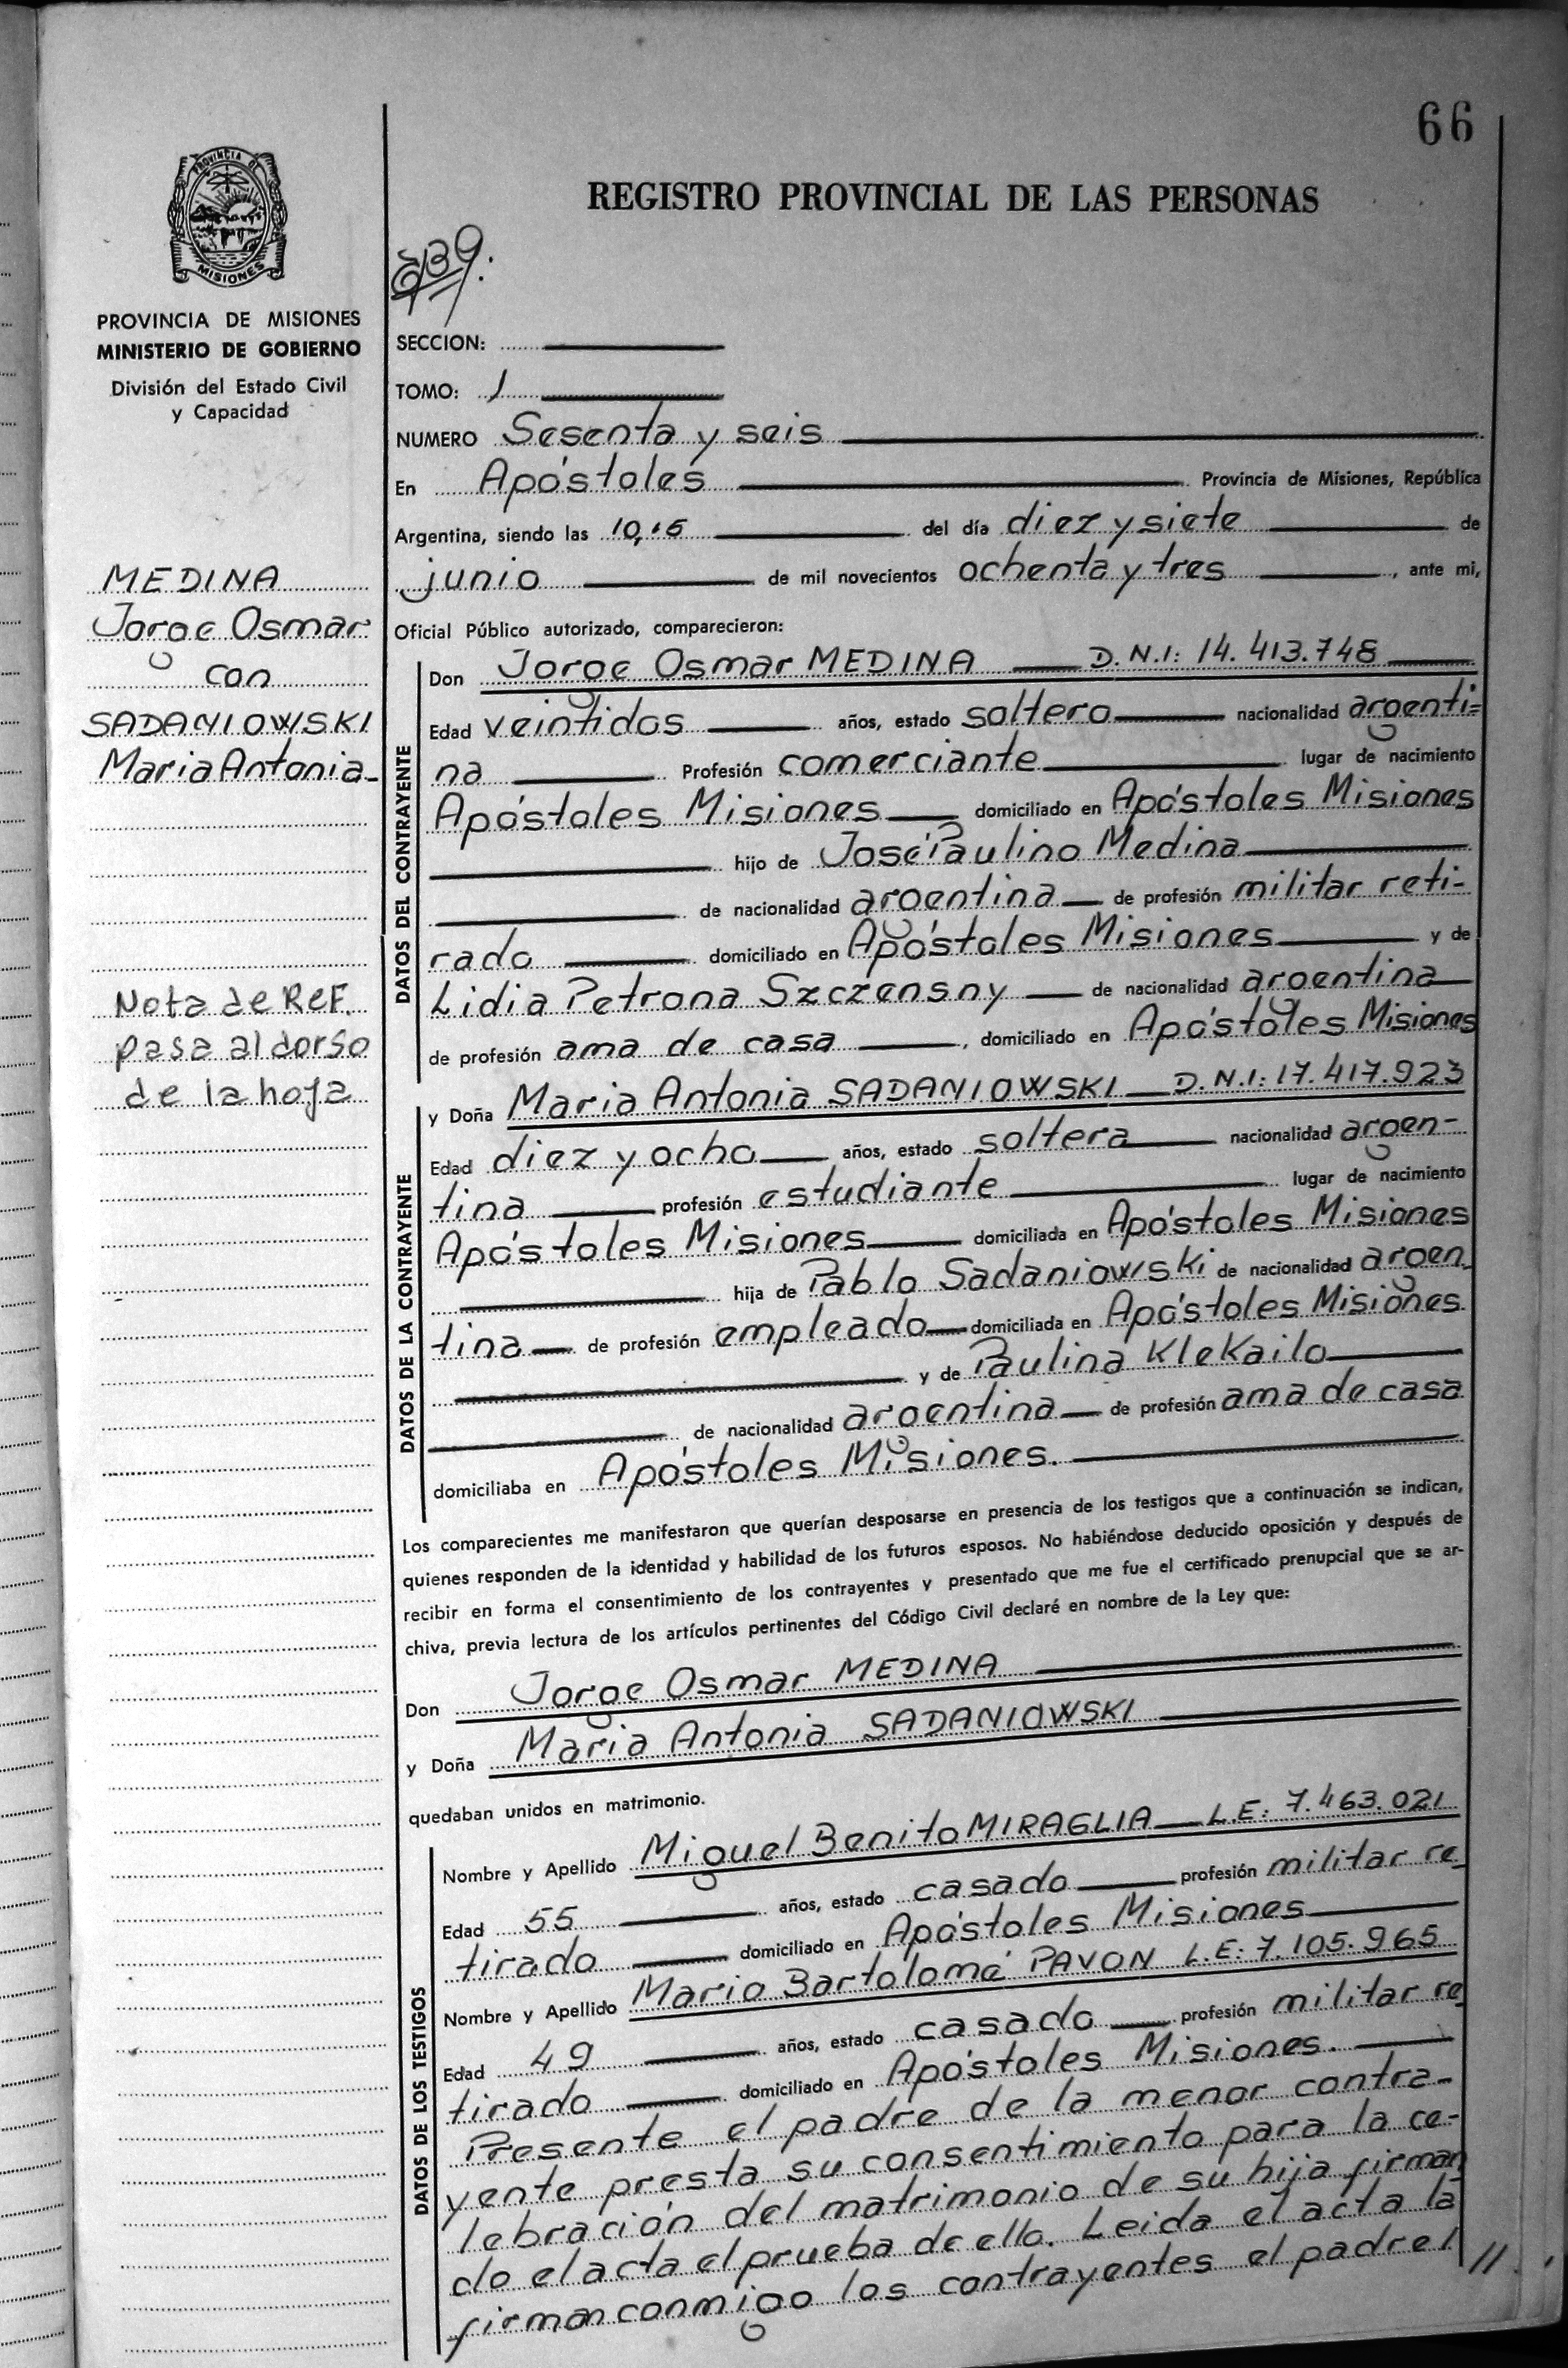 66
PROVINCIA DE
MISIONES
REGISTRO PROVINCIAL DE LAS PERSONAS
PROVINCIA DE MISIONES
MINISTERIO DE GOBIERNO
División del Estado Civil
y Capacidad
MEDINA
Jorge Osmar
con
SADANIOWSKI
Maria Antonia
Nota de ReF.
pasa al dorso
de la hoja
SECCION:
TOMO: 1
NUMERO Sesenta y seis
En Apóstoles Provincia de Misiones, República
Argentina, siendo las 10,15 del día diez y siete de
junio de mil novecientos ochenta y tres, ante mi,
Oficial Público autorizado, comparecieron:
DATOS DEL CONTRAYENTE
Don Jorge Osmar MEDINA D.N.I: 14.413.748
Edad veintidos años, estado soltero nacionalidad argenti=
na Profesión comerciante lugar de nacimiento
Apóstoles Misiones domiciliado en Apóstoles Misiones
hijo de José Paulino Medina
de nacionalidad argentina de profesión militar reti-
rado domiciliado en Apóstoles Misiones y de
Lidia Petrona Szczensny de nacionalidad argentina
de profesión ama de casa, domiciliado en Apóstoles Misiones
DATOS DE LA CONTRAYENTE
y Doña Maria Antonia SADANIOWSKI D.N.I: 17.417.923
Edad diez y ocho años, estado soltera nacionalidad argen-
tina profesión estudiante lugar de nacimiento
Apóstoles Misiones domiciliada en Apóstoles Misiones
hija de Pablo Sadaniowski de nacionalidad argen
tina de profesión empleado domiciliada en Apóstoles Misiones
y de Paulina Klekailo
de nacionalidad argentina de profesión ama de casa
domiciliaba en Apóstoles Misiones.
Los comparecientes me manifestaron que querían desposarse en presencia de los testigos que a continuación se indican,
quienes responden de la identidad y habilidad de los futuros esposos. No habiéndose deducido oposición y después de
recibir en forma el consentimiento de los contrayentes y presentado que me fue el certificado prenupcial que se ar-
chiva, previa lectura de los artículos pertinentes del Código Civil declaré en nombre de la Ley que:
Don Jorge Osmar MEDINA
y Doña Maria Antonia SADANIOWSKI
quedaban unidos en matrimonio.
DATOS DE LOS TESTIGOS
Nombre y Apellido Miguel Benito MIRAGLIA L.E: 7.463.021
Edad 55 años, estado casado profesión militar re
tirado domiciliado en Apóstoles Misiones
Nombre y Apellido Mario Bartolomé PAVON L.E: 7.105.965
Edad 49 años, estado casado profesión militar re
tirado domiciliado en Apóstoles Misiones.
Presente el padre de la menor contra-
yente presta su consentimiento para la ce-
lebración del matrimonio de su hija firman
do el acta el prueba de ello. Leida el acta la
firman conmigo los contrayentes el padre //